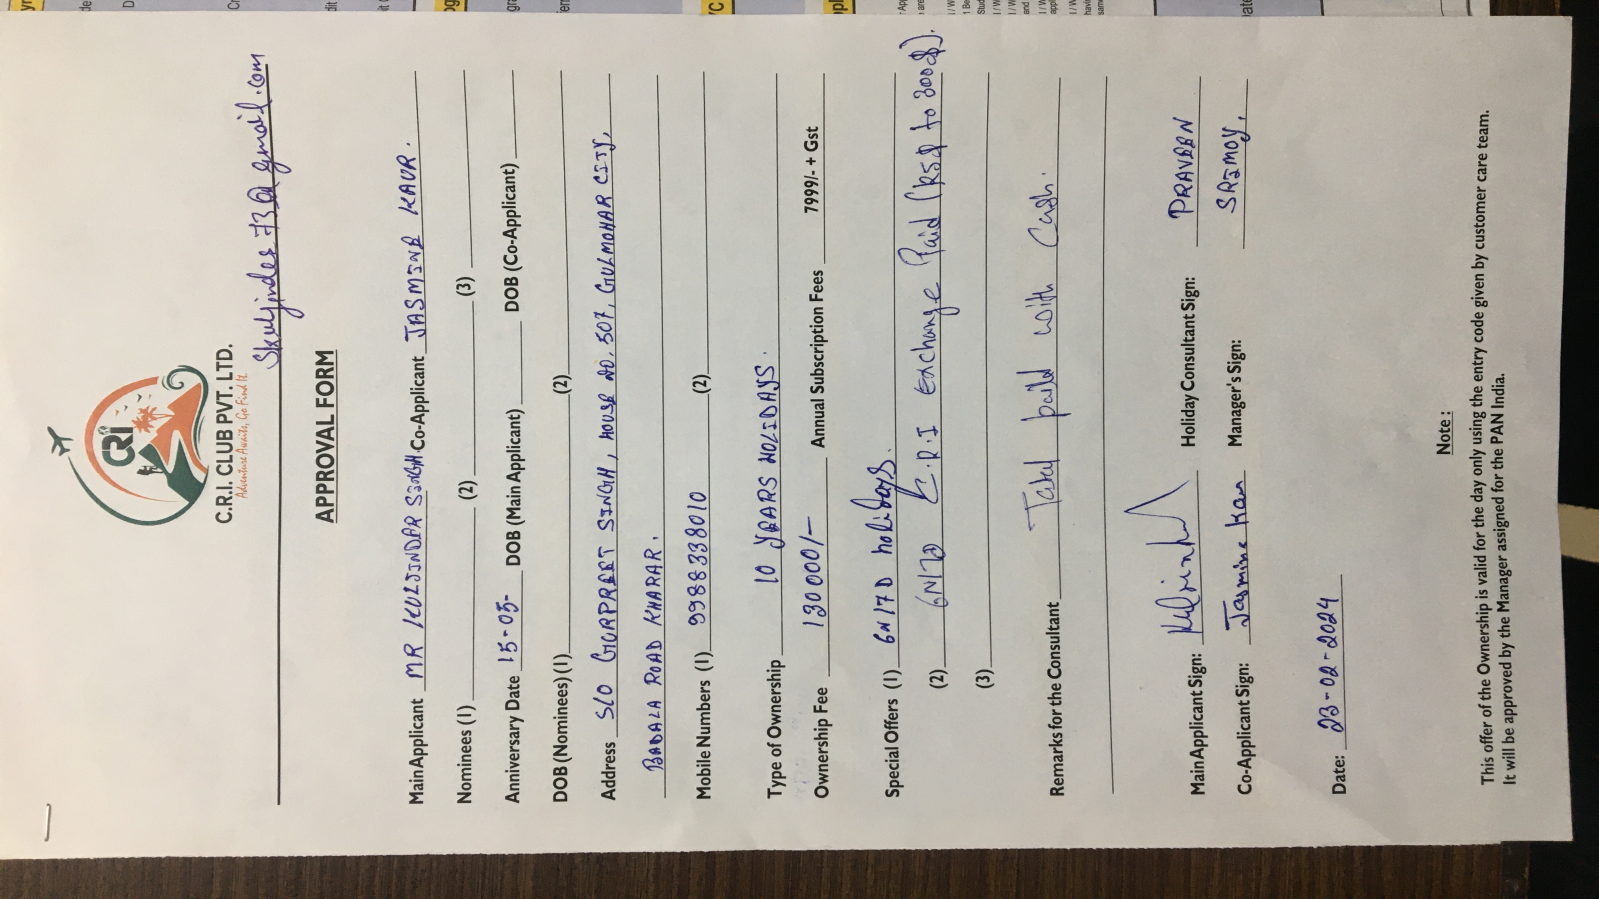 CRI
C.R.I. CLUB PVT. LTD.
Adventure Awaits, Go Find It
Skuljinder73@gmail.com
APPROVAL FORM
Main Applicant MR KULJINDAR SINGH Co-Applicant JASMINE KAUR.
Nominees (1) (2) (3)
Anniversary Date 15-05- DOB (Main Applicant) DOB (Co-Applicant)
DOB (Nominees) (1) (2)
Address S/O GURPREET SINGH, HOUSE NO. 507, GULMOHAR CITY,
BADALA ROAD KHARAR.
Mobile Numbers (1) 9988338010 (2)
Type of Ownership 10 YEARS HOLIDAYS.
Ownership Fee 130000/- Annual Subscription Fees 7999/- + Gst
Special Offers (1) 6N17D holidays.
(2) 6N17D R.I Exchange Paid ( to 300$).
(3)
Remarks for the Consultant Total paid with Cash.
Main Applicant Sign: Holiday Consultant Sign: PRAVEEN
Co-Applicant Sign: Jasmine Kaur Manager's Sign: SRIMOY.
Date: 23-02-2024
Note :
This offer of the Ownership is valid for the day only using the entry code given by customer care team.
It will be approved by the Manager assigned for the PAN India.